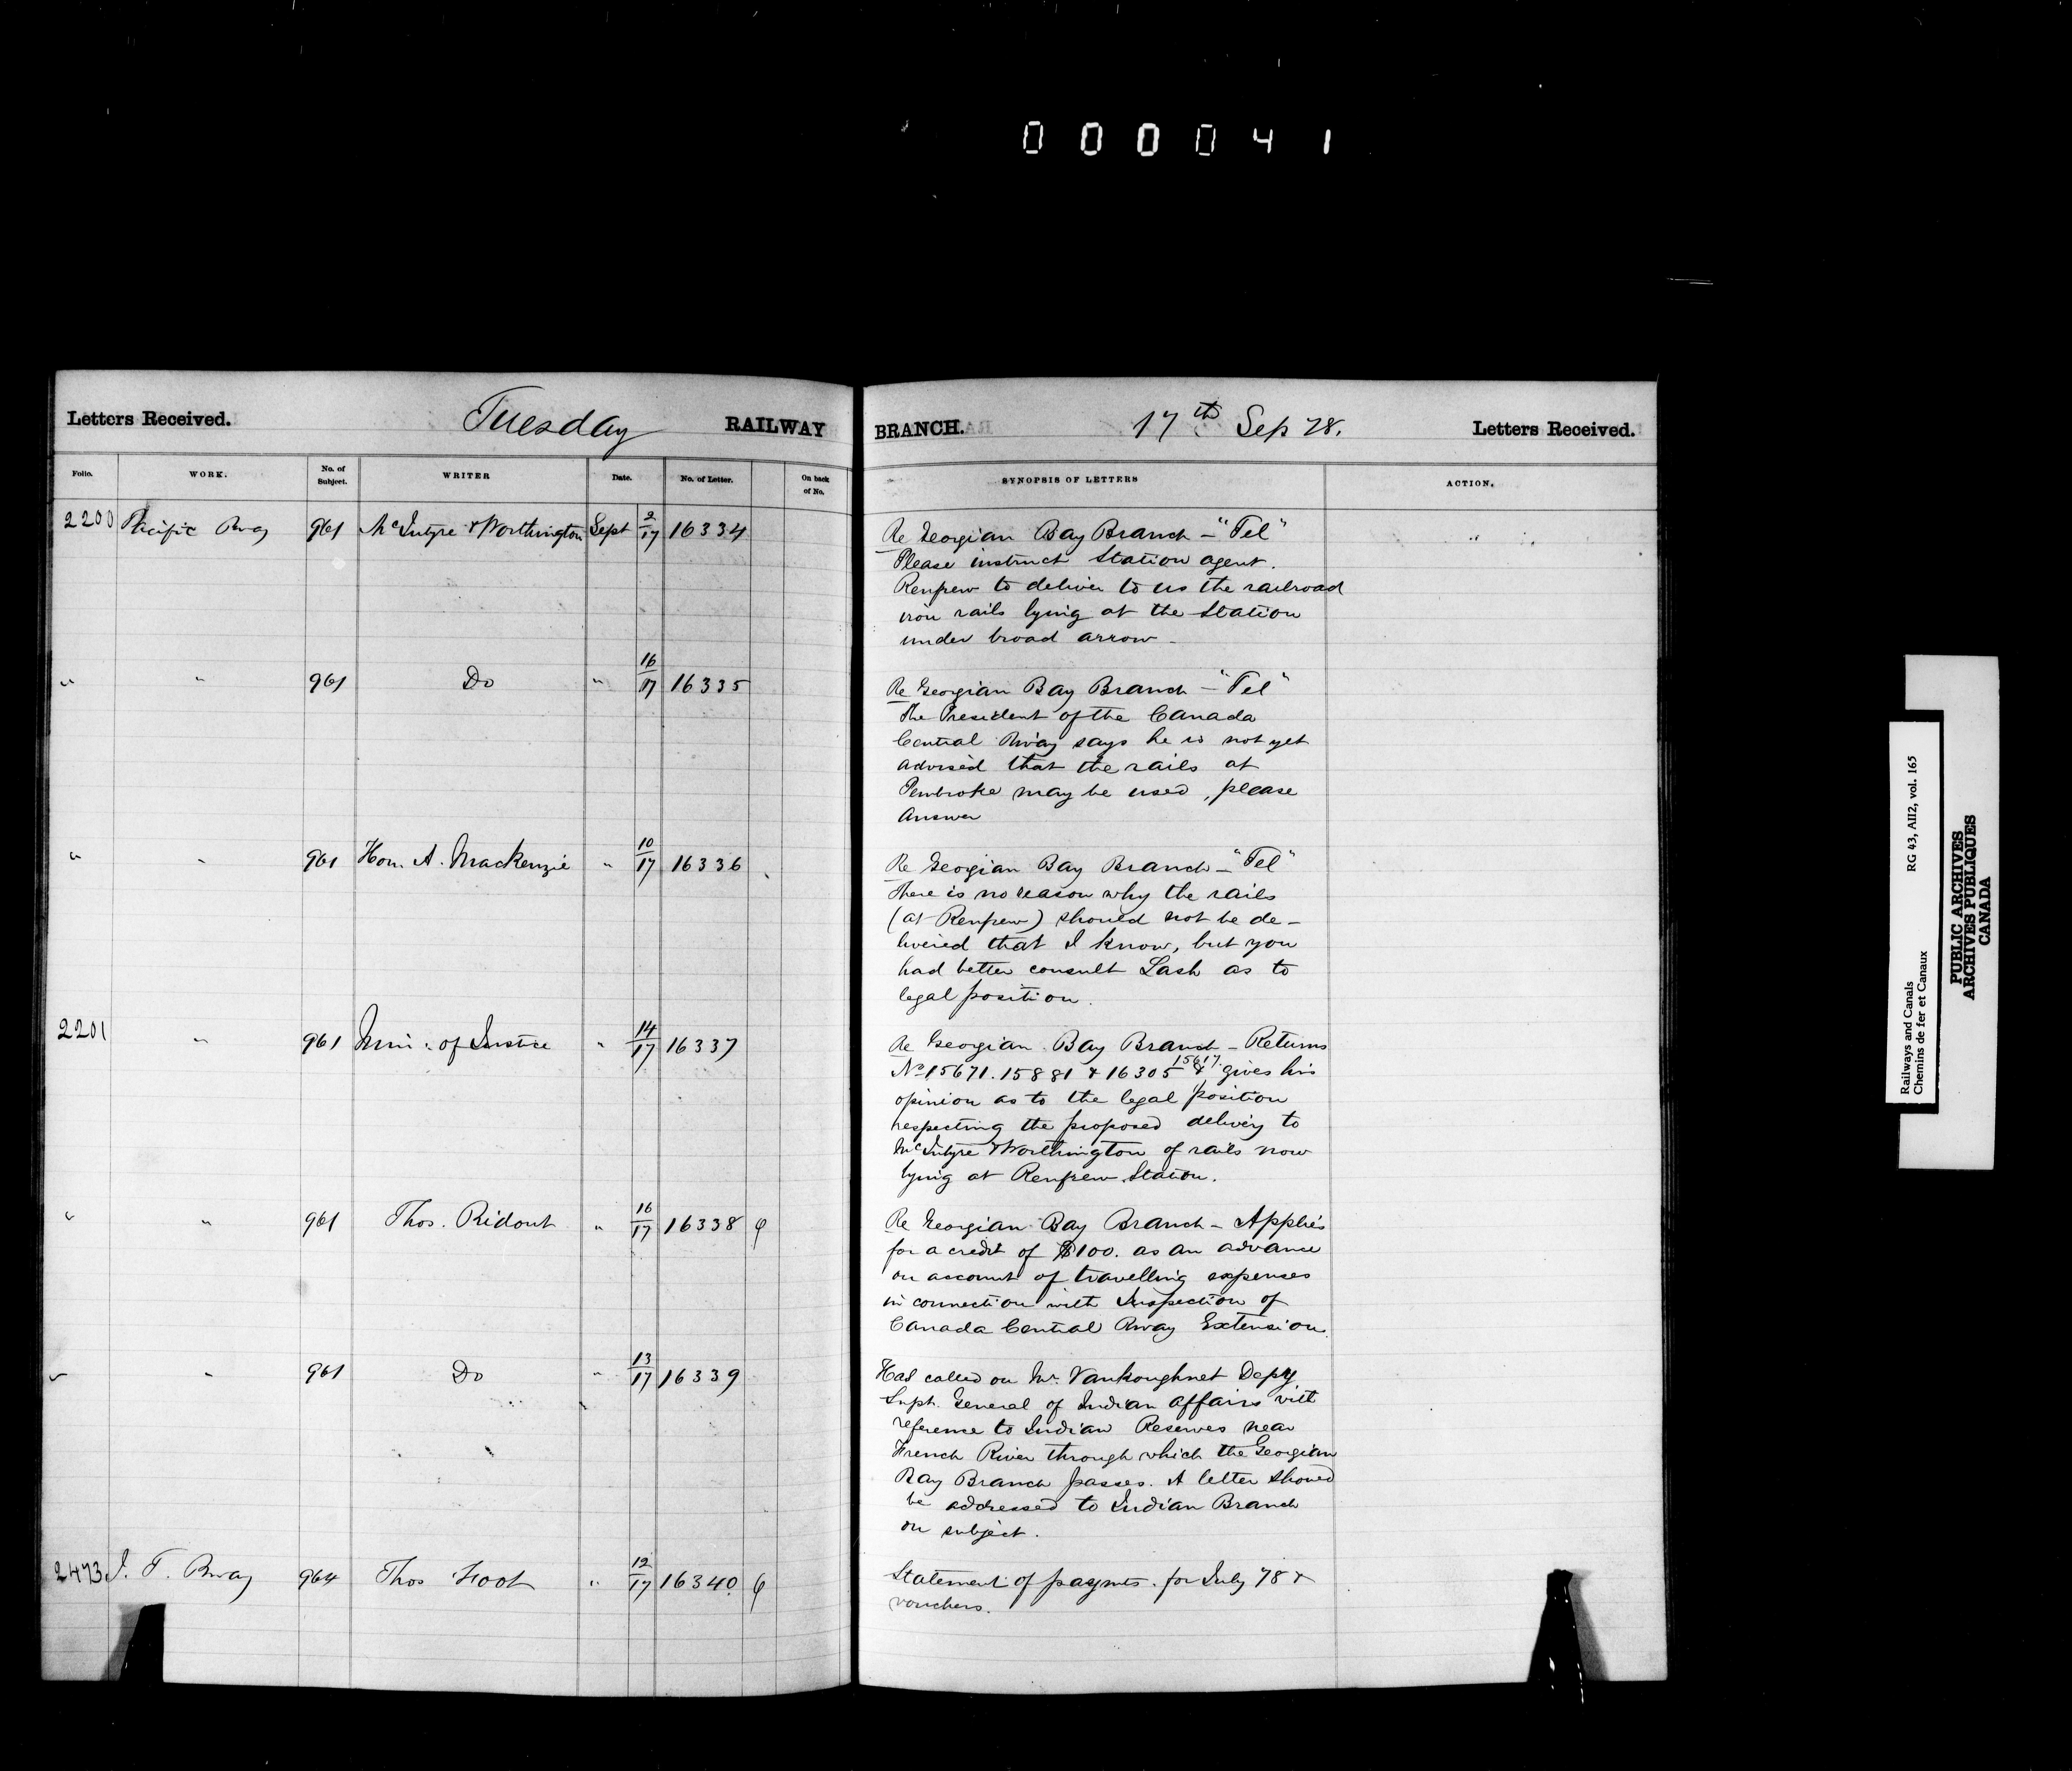 000041
Letters Received. Tuesday RAILWAY BRANCH. 17th Sep 78. Letters Received.
Folio. WORK. No. of Subject. WRITER Date. No. of Letter. On back of No. SYNOPSIS OF LETTERS ACTION.
2200 Pacific Rway 961 McIntyre & Worthington Sept 2/17 16334 Re Georgian Bay Branch - "Tel"
Please instruct Station agent.
Renfrew to deliver to us the railroad
iron rails lying at the Station
under broad arrow -
" " 961 Do " 16/17 16335 Re Georgian Bay Branch - "Tel"
The President of the Canada
Central Rway says he is not yet
advised that the rails at
Pembroke may be used, please
answer
" " 961 Hon. A. Mackenzie " 10/17 16336 Re Georgian Bay Branch - "Tel"
There is no reason why the rails
(at Renfrew) should not be de-
livered that I know, but you
had better consult Lash as to
legal position.
2201 " 961 Min: of Justice " 14/17 16337 Re Georgian Bay Branch - Returns
No 15671. 15881 & 16305 15617 & gives his
opinion as to the legal position
respecting the proposed delivery to
McIntyre & Worthington of rails now
lying at Renfrew Station.
" " 961 Thos. Ridout " 16/17 16338 Re Georgian Bay Branch - Applies
for a credit of $100. as an advance
on account of travelling expenses
in connection with Inspection of
Canada Central Rway Extension.
" " 961 Do " 13/17 16339 Has called on Mr. Vankoughnet Depy
Supt. General of Indian affairs with
reference to Indian Reserves near
French River through which the Georgian
Bay Branch passes. A letter should
be addressed to Indian Branch
on subject.
2473 I. T. Rway 964 Thos Foot " 12/17 16340 Statement of paymts. for July 78 &
vouchers.
Railways and Canals RG 43, AII2, vol. 165
Chemins de fer et Canaux
PUBLIC ARCHIVES
ARCHIVES PUBLIQUES
CANADA